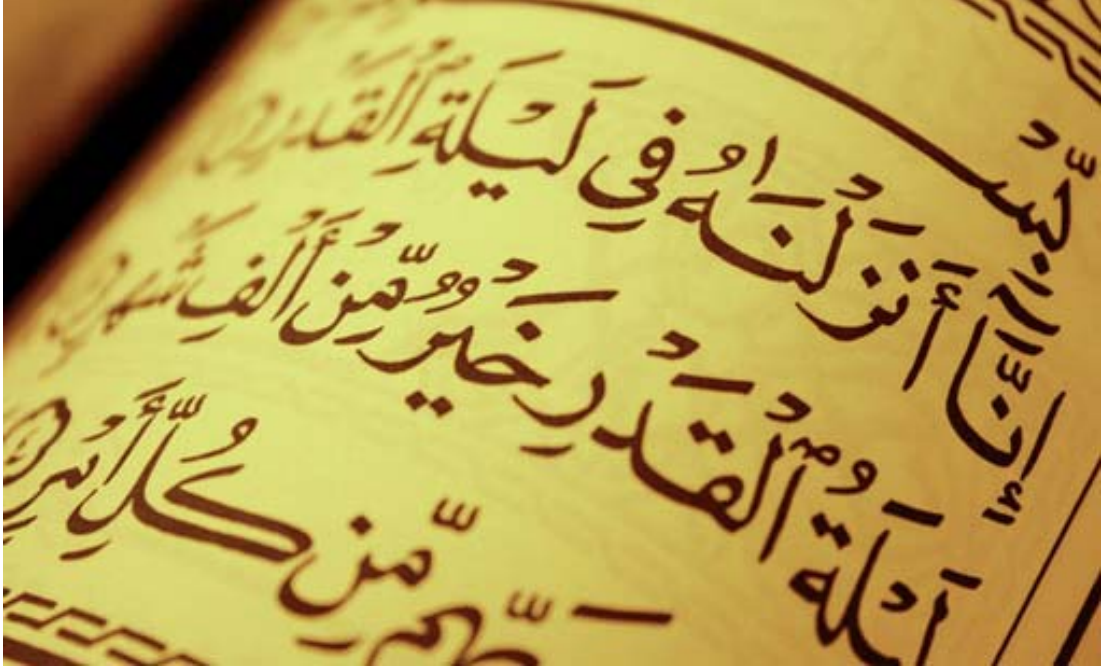 إِنَّآ أَنزَلْنَٰهُ فِي لَيْلَةِ ٱلْقَدْرِ
لَيْلَةُ ٱلْقَدْرِ خَيْرٌ مِّنْ أَلْفِ شَهْرٍ
مِّن كُلِّ أَمْرٍ